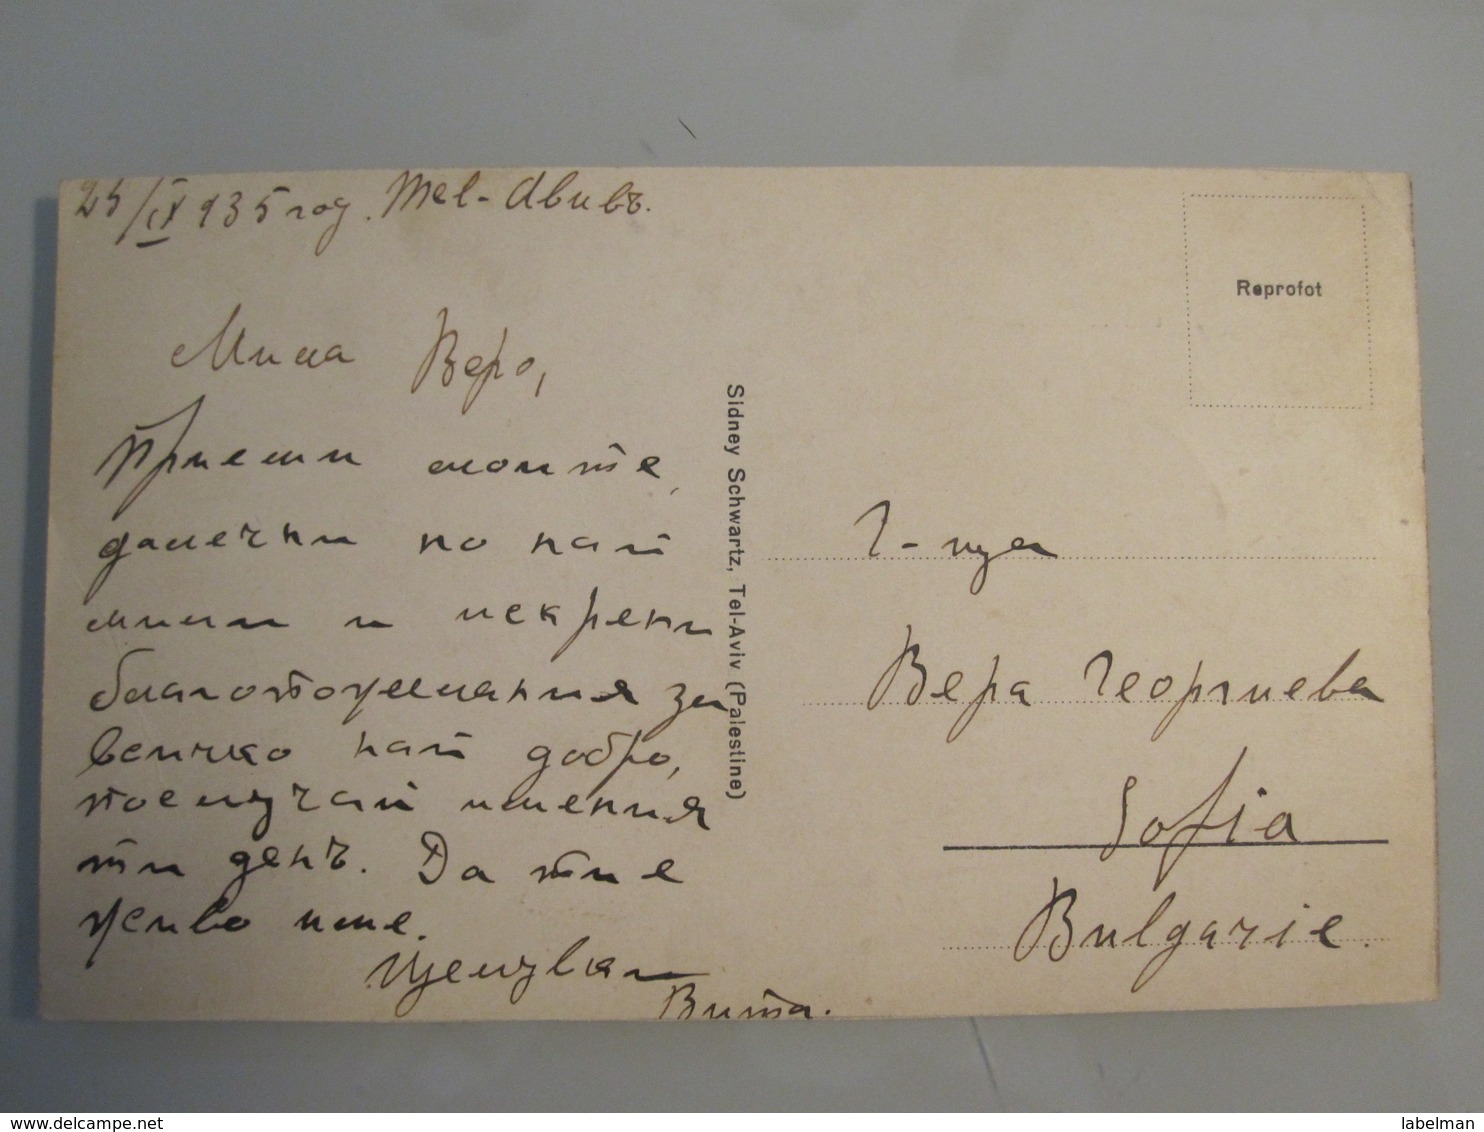 25/IX 935 год. Тел-Авивъ.
Мила Веро,
Приеми моите,
далечни но най
мили и искрени
благопожелания за
всичко най добро,
по случай имения
ти день. Да ти е
честно име.
Целувки
Вита.
Sidney Schwartz, Tel-Aviv (Palestine)
Reprofot
Г-ца
Вера Георгиева
Sofia
Bulgarie.